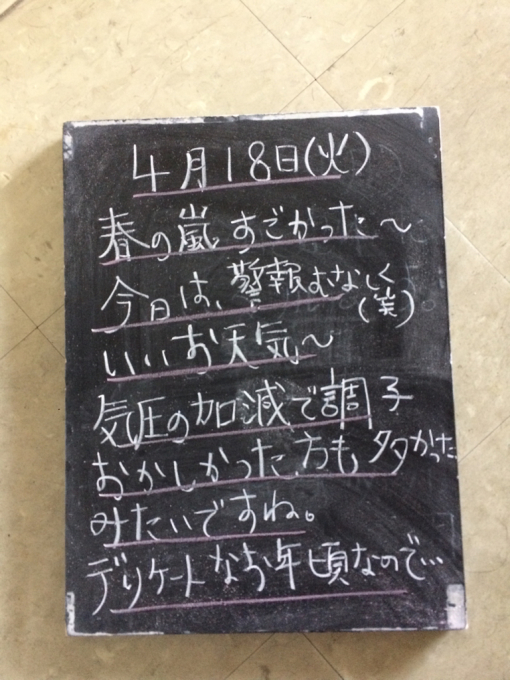 4月18日(火)
春の嵐すごかった〜
今日は、警報むなしく(笑)
いいお天気〜
気圧の加減で調子
おかしかった方も多かった
みたいですね。
デリケートなお年頃なので…